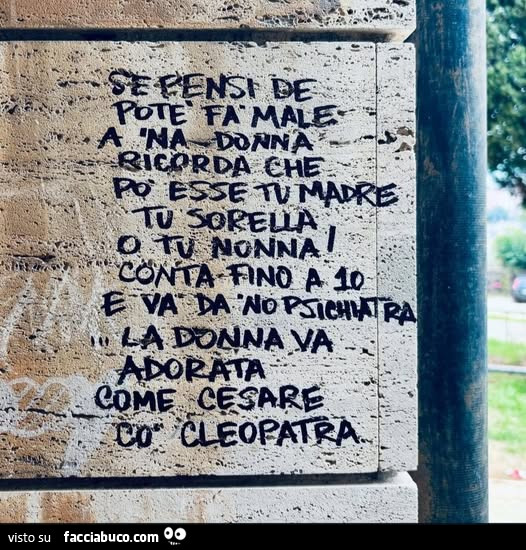 SE PENSI DE
POTE' FA' MALE
A 'NA DONNA
RICORDA CHE
PO' ESSE TU MADRE
TU SORELLA
O TU NONNA!
CONTA FINO A 10
E VA' DA 'NO PSICHIATRA
... LA DONNA VA
ADORATA
COME CESARE
CO' CLEOPATRA.
visto su facciabuco.com